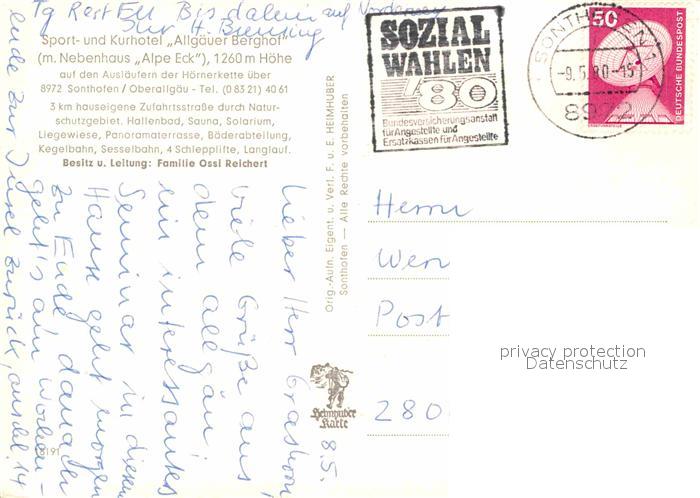 Tg Rest EU Bis dahin auf Norderney
Ihr H.
Sport- und Kurhotel „Allgäuer Berghof"
(m. Nebenhaus „Alpe Eck"), 1260 m Höhe
auf den Ausläufern der Hörnerkette über
8972 Sonthofen / Oberallgäu - Tel. (0 83 21) 40 61
3 km hauseigene Zufahrtsstraße durch Natur-
schutzgebiet. Hallenbad, Sauna, Solarium,
Liegewiese, Panoramaterrasse, Bäderabteilung,
Kegelbahn, Sesselbahn, 4 Schlepplifte, Langlauf.
Besitz u. Leitung: Familie Ossi Reichert
8.5.
Lieber Herr
viele Grüße aus
dem allgäu
ein interessantes
Seminar in diesem
Hause geht morgen
zu Ende, danach
geht's am Wochen-
ende zur Insel zurück,
18191
Orig.-Aufn. Eigent. u. Verl. F. u. E. HEIMHUBER
Sonthofen — Alle Rechte vorbehalten
Heimhuber
Karte
SOZIAL
WAHLEN
'80
Bundesversicherungsanstalt
für Angestellte und
Ersatzkassen für Angestellte
SONTHOFEN 1
-9.5.80-15
8972
50
DEUTSCHE BUNDESPOST
Herrn
Wern
Post
280
privacy protection
Datenschutz